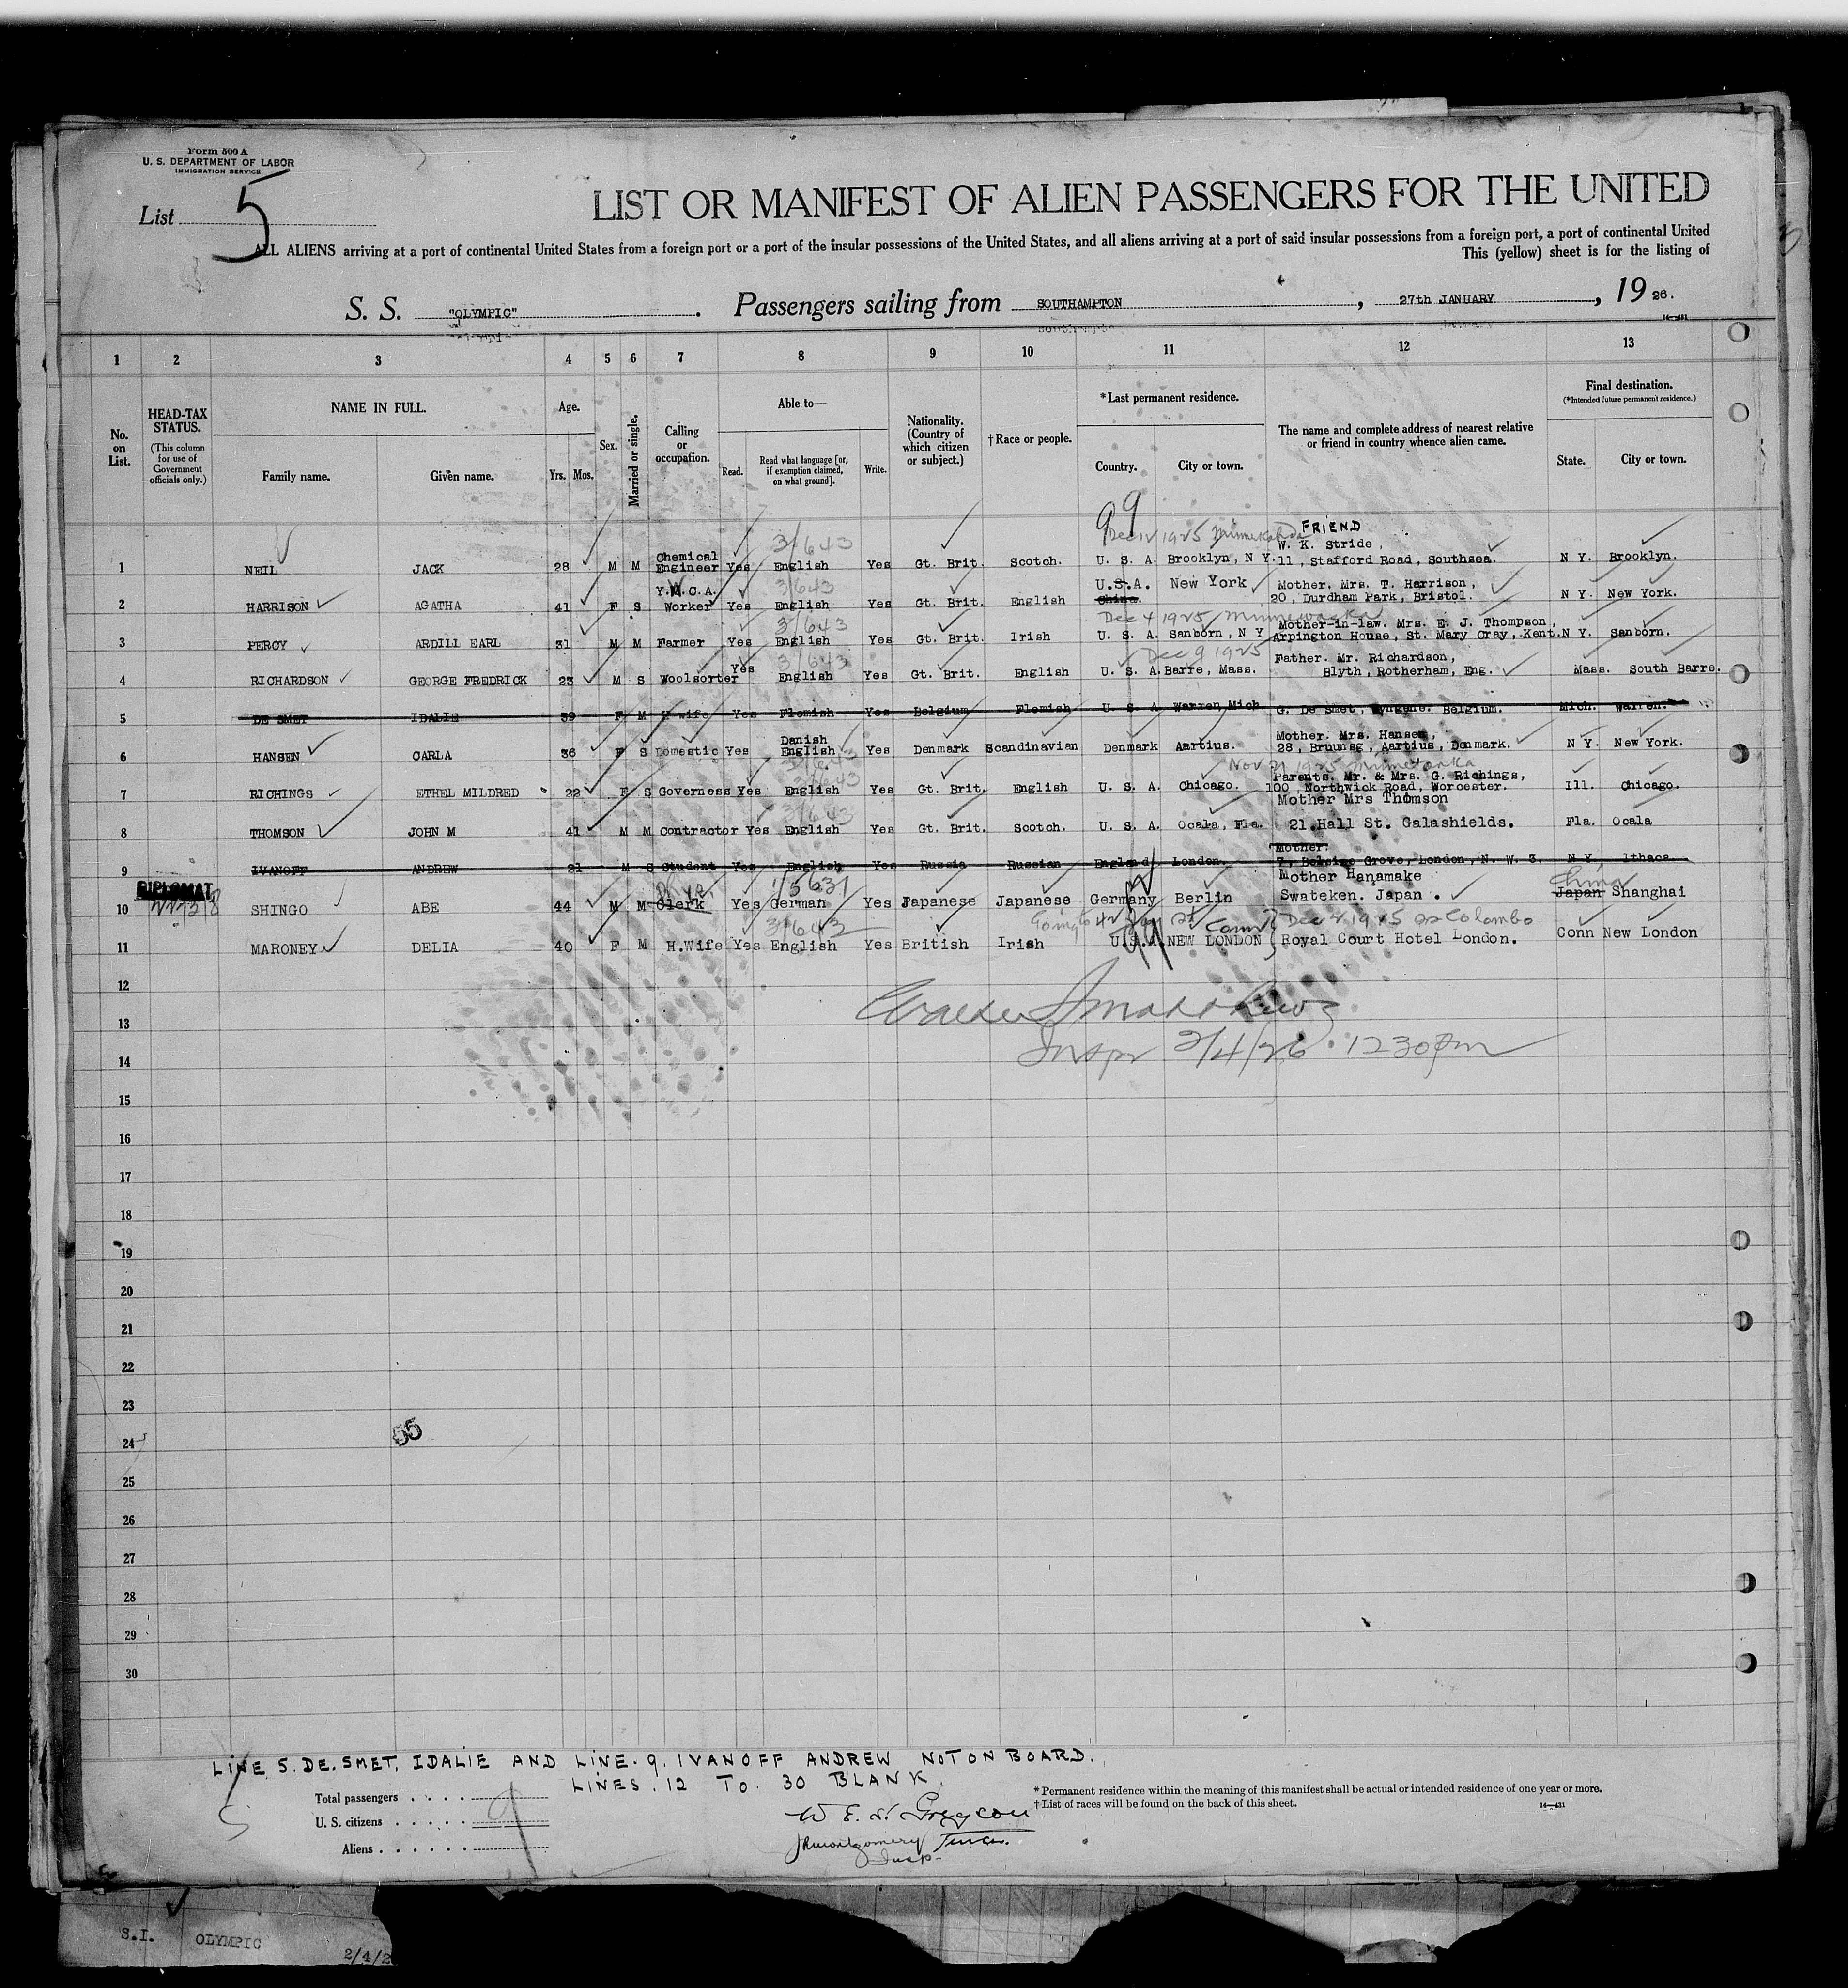 Form 500 A
U. S. DEPARTMENT OF LABOR
IMMIGRATION SERVICE
List 5
LIST OR MANIFEST OF ALIEN PASSENGERS FOR THE UNITED
ALL ALIENS arriving at a port of continental United States from a foreign port or a port of the insular possessions of the United States, and all aliens arriving at a port of said insular possessions from a foreign port, a port of continental United
This (yellow) sheet is for the listing of
S. S. "OLYMPIC". Passengers sailing from SOUTHAMPTON, 27th JANUARY, 1926.
14—431
1 2 3 4 5 6 7 8 9 10 11 12 13
No. on List.
HEAD-TAX STATUS.
(This column for use of Government officials only.)
NAME IN FULL.
Family name. Given name.
Age.
Yrs. Mos.
Sex.
Married or single.
Calling or occupation.
Able to—
Read. Read what language [or, if exemption claimed, on what ground]. Write.
Nationality. (Country of which citizen or subject.)
†Race or people.
*Last permanent residence.
Country. City or town.
The name and complete address of nearest relative or friend in country whence alien came.
Final destination.
(*Intended future permanent residence.)
State. City or town.
99
Dec 12 1925 Minnekahda
3/643
FRIEND
W. K. Stride,
1 NEIL JACK 28 M M Chemical Engineer Yes English Yes Gt. Brit. Scotch. U. S. A. Brooklyn, N Y. 11, Stafford Road, Southsea. N Y. Brooklyn.
3/643
Y.W.C.A. U.S.A. New York Mother. Mrs. T. Harrison,
2 HARRISON AGATHA 41 F S Worker Yes English Yes Gt. Brit. English China. 20, Durdham Park, Bristol. N Y. New York.
3/643 Dec 4 1925 Minnewaska
Mother-in-law. Mrs. E. J. Thompson,
3 PERCY ARDILL EARL 31 M M Farmer Yes English Yes Gt. Brit. Irish U. S. A. Sanborn, N Y Arpington House, St. Mary Cray, Kent. N Y. Sanborn.
3/643 Dec 9 1925
Father. Mr. Richardson,
4 RICHARDSON GEORGE FREDRICK 23 M S Woolsorter Yes English Yes Gt. Brit. English U. S. A. Barre, Mass. Blyth, Rotherham, Eng. Mass. South Barre.
5 DE SMET IDALIE 39 F M H wife Yes Flemish Yes Belgium Flemish U. S. A Warren, Mich G. De Smet, Wyngene. Belgium. Mich. Warren.
Danish Mother. Mrs. Hansen,
6 HANSEN CARLA 36 F S Domestic Yes English Yes Denmark Scandinavian Denmark Aartius. 28, Bruunsg, Aartius, Denmark. N Y. New York.
3/643 Nov 21 1925 Minnetonka
3/643 Parents. Mr. & Mrs. G. Richings,
7 RICHINGS ETHEL MILDRED 22 F S Governess Yes English Yes Gt. Brit. English U. S. A. Chicago. 100, Northwick Road, Worcester. Ill. Chicago.
3/643 Mother Mrs Thomson
8 THOMSON JOHN M 41 M M Contractor Yes English Yes Gt. Brit. Scotch. U. S. A. Ocala, Fla. 21 Hall St. Galashields. Fla. Ocala
Mother.
9 IVANOFF ANDREW 21 M S Student Yes English Yes Russia Russian England London. 7, Belsize Grove, London, N. W. 3. N Y, Ithaca.
DIPLOMAT
Mother Hanamake China
10 SHINGO ABE 44 M M Clerk Yes German Yes Japanese Japanese Germany Berlin Swateken. Japan. Japan Shanghai
3/643 Conn Dec 2 1925 as Colombo
11 MARONEY DELIA 40 F M H.Wife Yes English Yes British Irish U.S.A. NEW LONDON Royal Court Hotel London. Conn New London
12
13
Inspr 2/4/26 1230pm
14
15
16
17
18
19
20
21
22
23
24
55
25
26
27
28
29
30
LINE 5. DE. SMET, IDALIE AND LINE. 9. IVANOFF ANDREW NOT ON BOARD.
LINES. 12 TO. 30 BLANK.
Total passengers
U. S. citizens 9
Aliens
*Permanent residence within the meaning of this manifest shall be actual or intended residence of one year or more.
†List of races will be found on the back of this sheet.
14—431
Insp.
S.I. OLYMPIC 2/4/2